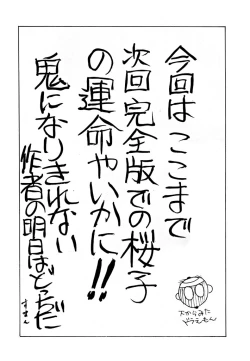 今回はここまで
次回完全版での桜子
の運命やいかに!!
鬼になりきれない
作者の明日はどっちだ
すまん
下からみた
ドラえもん